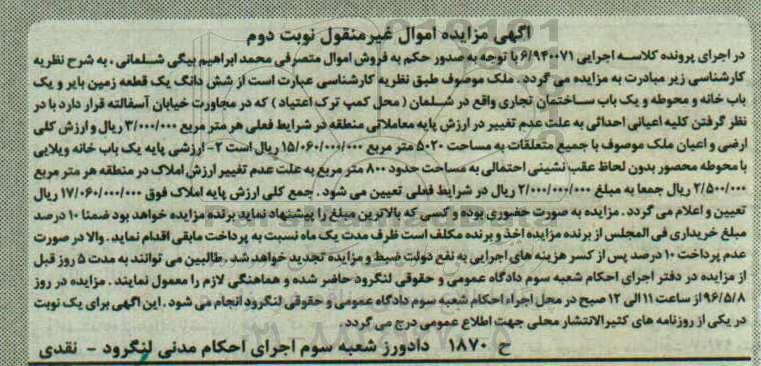 آگهی مزایده اموال غیرمنقول نوبت دوم
در اجرای پرونده کلاسه اجرایی ۶/۹۴۰۰۷۱ با توجه به صدور حکم به فروش اموال متصرفی محمد ابراهیم بیگی شلمانی ، به شرح نظریه
کارشناسی زیر مبادرت به مزایده می گردد . ملک موصوف طبق نظریه کارشناسی عبارت است از شش دانگ یک قطعه زمین بایر و یک
باب خانه و محوطه و یک باب ساختمان تجاری واقع در شلمان ( محل کمپ ترک اعتیاد ) که در مجاورت خیابان آسفالته قرار دارد با در
نظر گرفتن کلیه اعیانی احداثی به علت عدم تغییر در ارزش پایه معاملاتی منطقه در شرایط فعلی هر متر مربع ۳/۰۰۰/۰۰۰ ریال و ارزش کلی
ارضی و اعیان ملک موصوف با جمیع متعلقات به مساحت ۵۰۲۰ متر مربع ۱۵/۰۶۰/۰۰۰/۰۰۰ ریال است ۲- ارزشی پایه یک باب خانه ویلایی
با محوطه محصور بدون لحاظ عقب نشینی احتمالی به مساحت حدود ۸۰۰ متر مربع به علت عدم تغییر ارزش املاک در منطقه هر متر مربع
۲/۵۰۰/۰۰۰ ریال جمعا به مبلغ ۲/۰۰۰/۰۰۰/۰۰۰ ریال در شرایط فعلی تعیین می شود . جمع کلی ارزش پایه املاک فوق ۱۷/۰۶۰/۰۰۰/۰۰۰ ریال
تعیین و اعلام می گردد . مزایده به صورت حضوری بوده و کسی که بالاترین مبلغ را پیشنهاد نماید برنده مزایده خواهد بود ضمنا ۱۰ درصد
مبلغ خریداری فی المجلس از برنده مزایده اخذ و برنده مکلف است ظرف مدت یک ماه نسبت به پرداخت مابقی اقدام نماید . والا در صورت
عدم پرداخت ۱۰ درصد پس از کسر هزینه های اجرایی به نفع دولت ضبط و مزایده تجدید خواهد شد . طالبین می توانند به مدت ۵ روز قبل
از مزایده در دفتر اجرای احکام شعبه سوم دادگاه عمومی و حقوقی لنگرود حاضر شده و هماهنگی لازم را معمول نمایند . مزایده در روز
۹۶/۵/۸ از ساعت ۱۱ الی ۱۲ صبح در محل اجراء احکام شعبه سوم دادگاه عمومی و حقوقی لنگرود انجام می شود . این آگهی برای یک نوبت
در یکی از روزنامه های کثیرالانتشار محلی جهت اطلاع عمومی درج می گردد.
ح ۱۸۷۰ دادورز شعبه سوم اجرای احکام مدنی لنگرود - نقدی